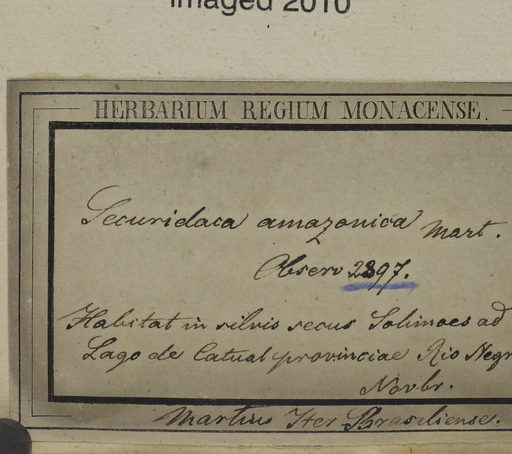 Imaged 2010
HERBARIUM REGIUM MONACENSE.
Securidaca amazonica Mart.
Observ 2897.
Habitat in silvis secus Solimoes ad
Lago de Catual provinciae Rio Negr
Novbr.
Martius Iter Brasiliense.